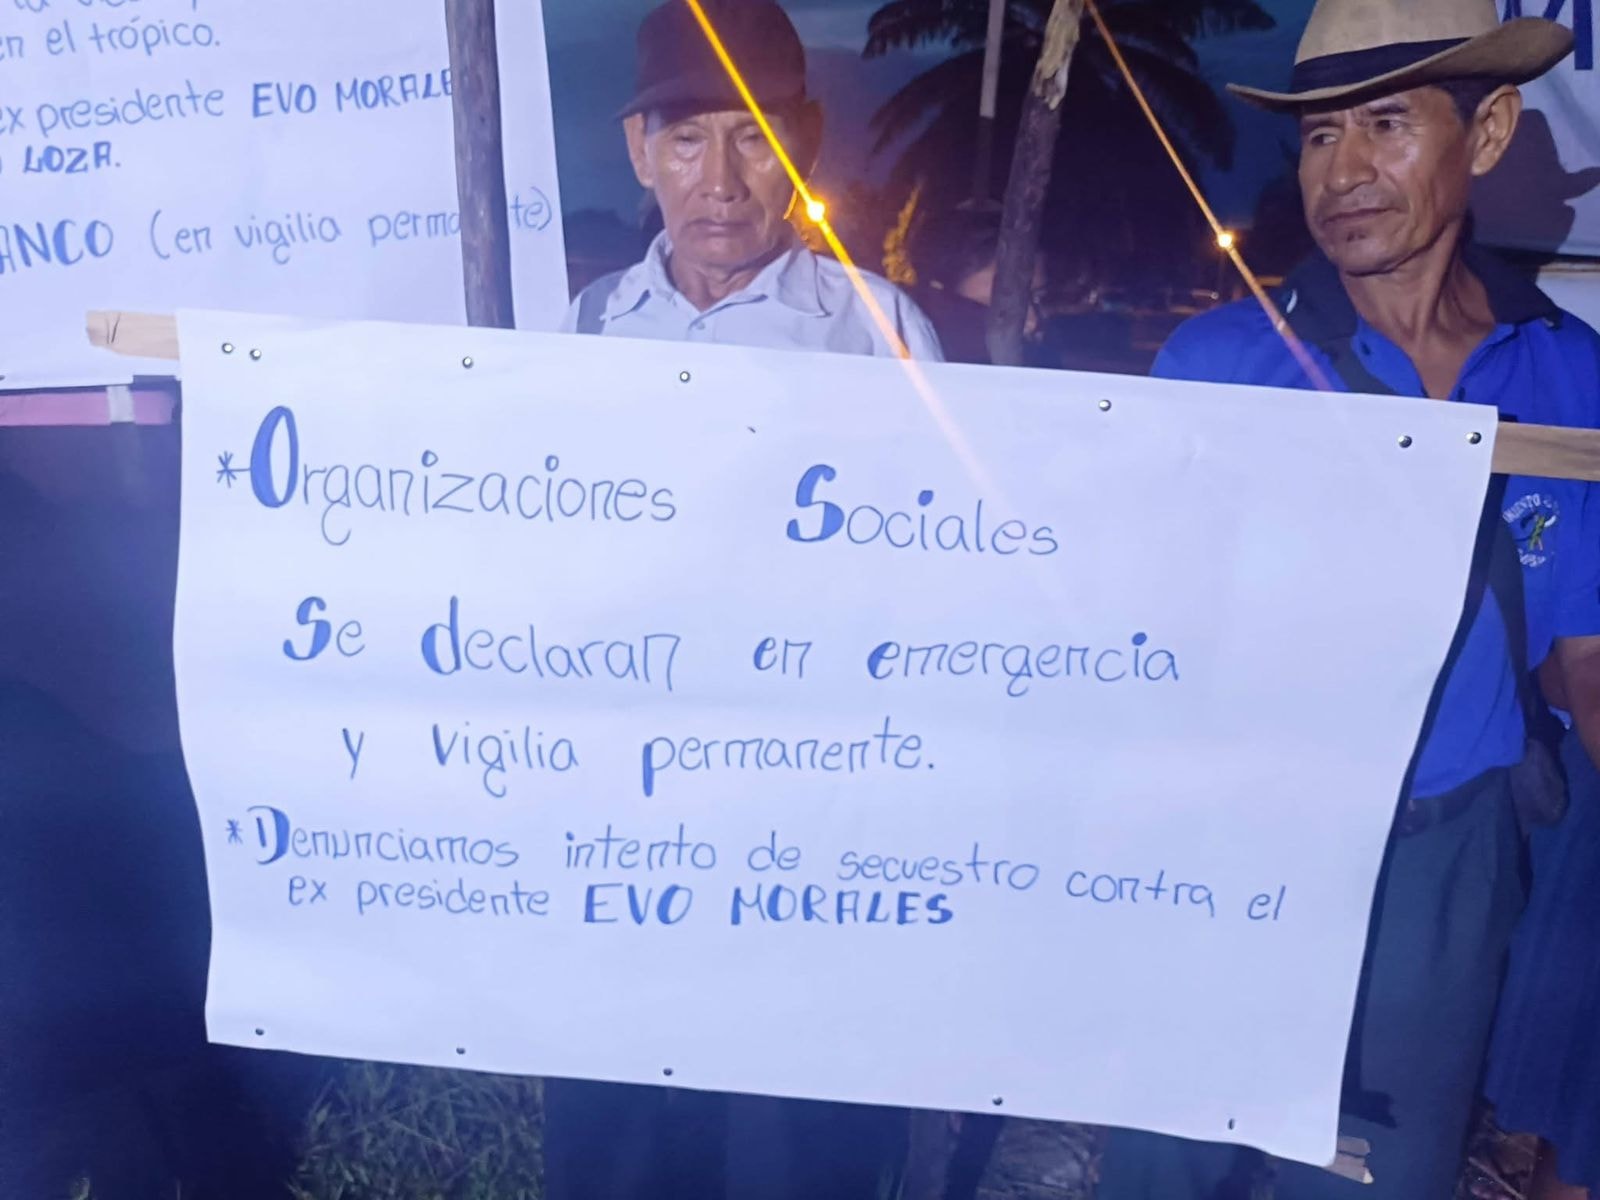 en el trópico.
ex presidente EVO MORALE
LOZA.
ANCO (en vigilia perma te)
*Organizaciones Sociales
Se declaran en emergencia
y vigilia permanente.
*Denunciamos intento de secuestro contra el
ex presidente EVO MORALES